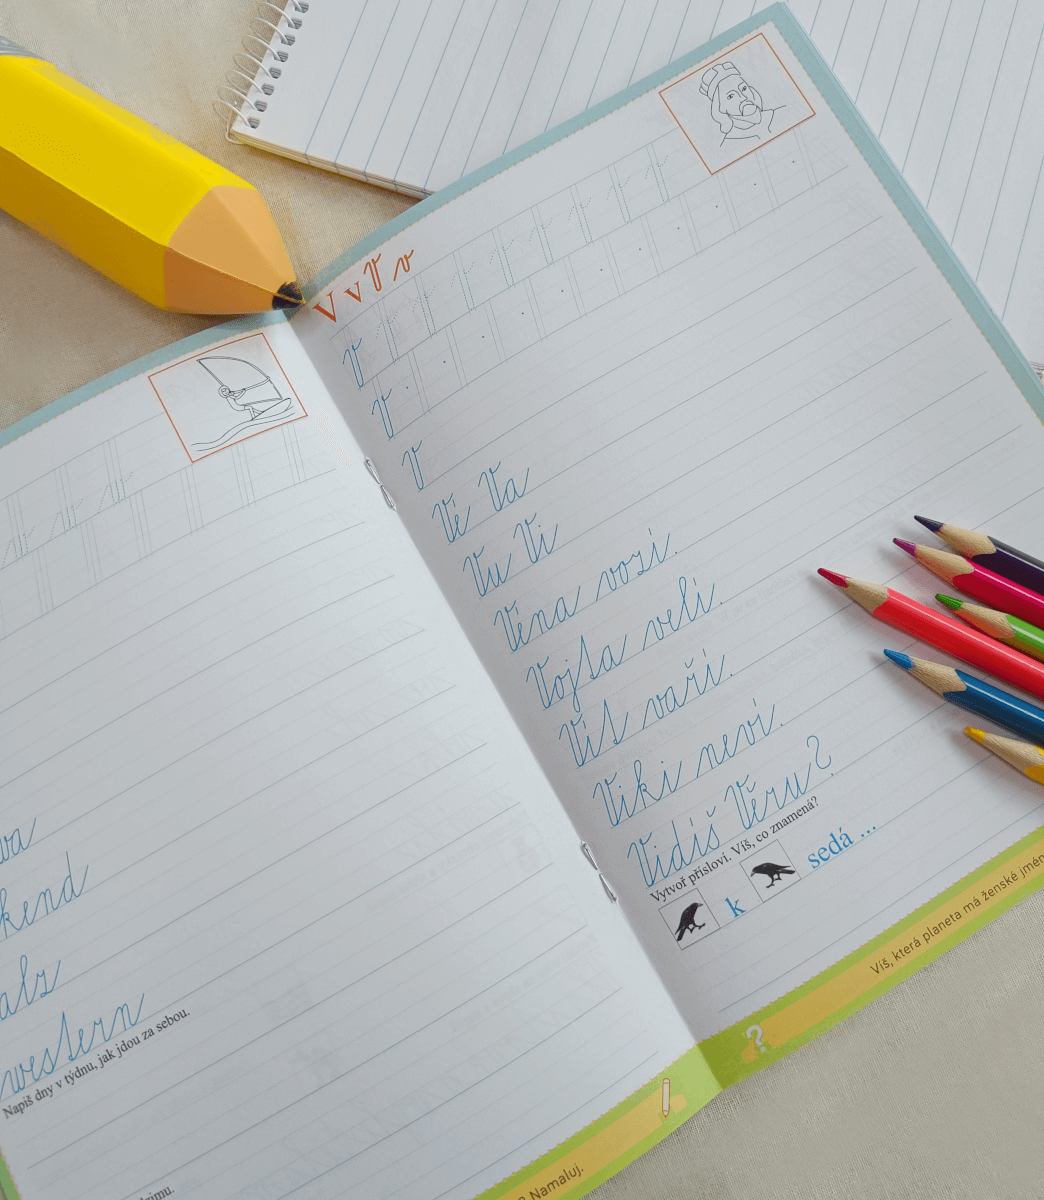 kend
alz
western
Napiš dny v týdnu, jak jdou za sebou.
? Namaluj.
V v V v
V
V
V
Vé Va
Vu Vi
Véna vozí.
Vojta velí.
Vít vaří.
Viki neví.
Vidíš Věru?
Vytvoř přísloví. Víš, co znamená?
k sedá ...
Víš, která planeta má ženské jmén